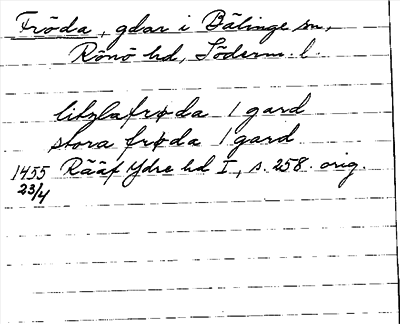 Fröda, gdar i Bälinge sn,
Rönö hd, Söderm. l.
litzlafrøda 1 gard
stora frøda 1 gard
1455 Rääf Ydre hd I, s. 258. orig.
23/4